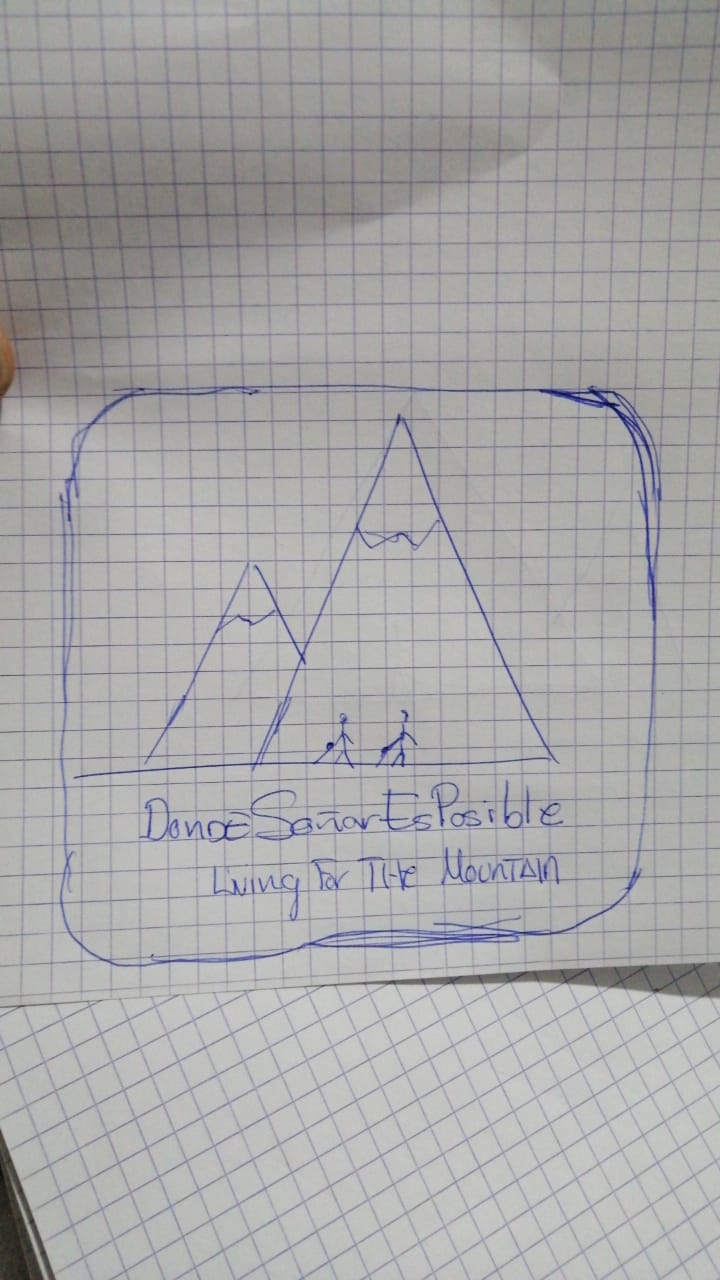 DonDE Soñar Es Posible
Living For The MounTAin